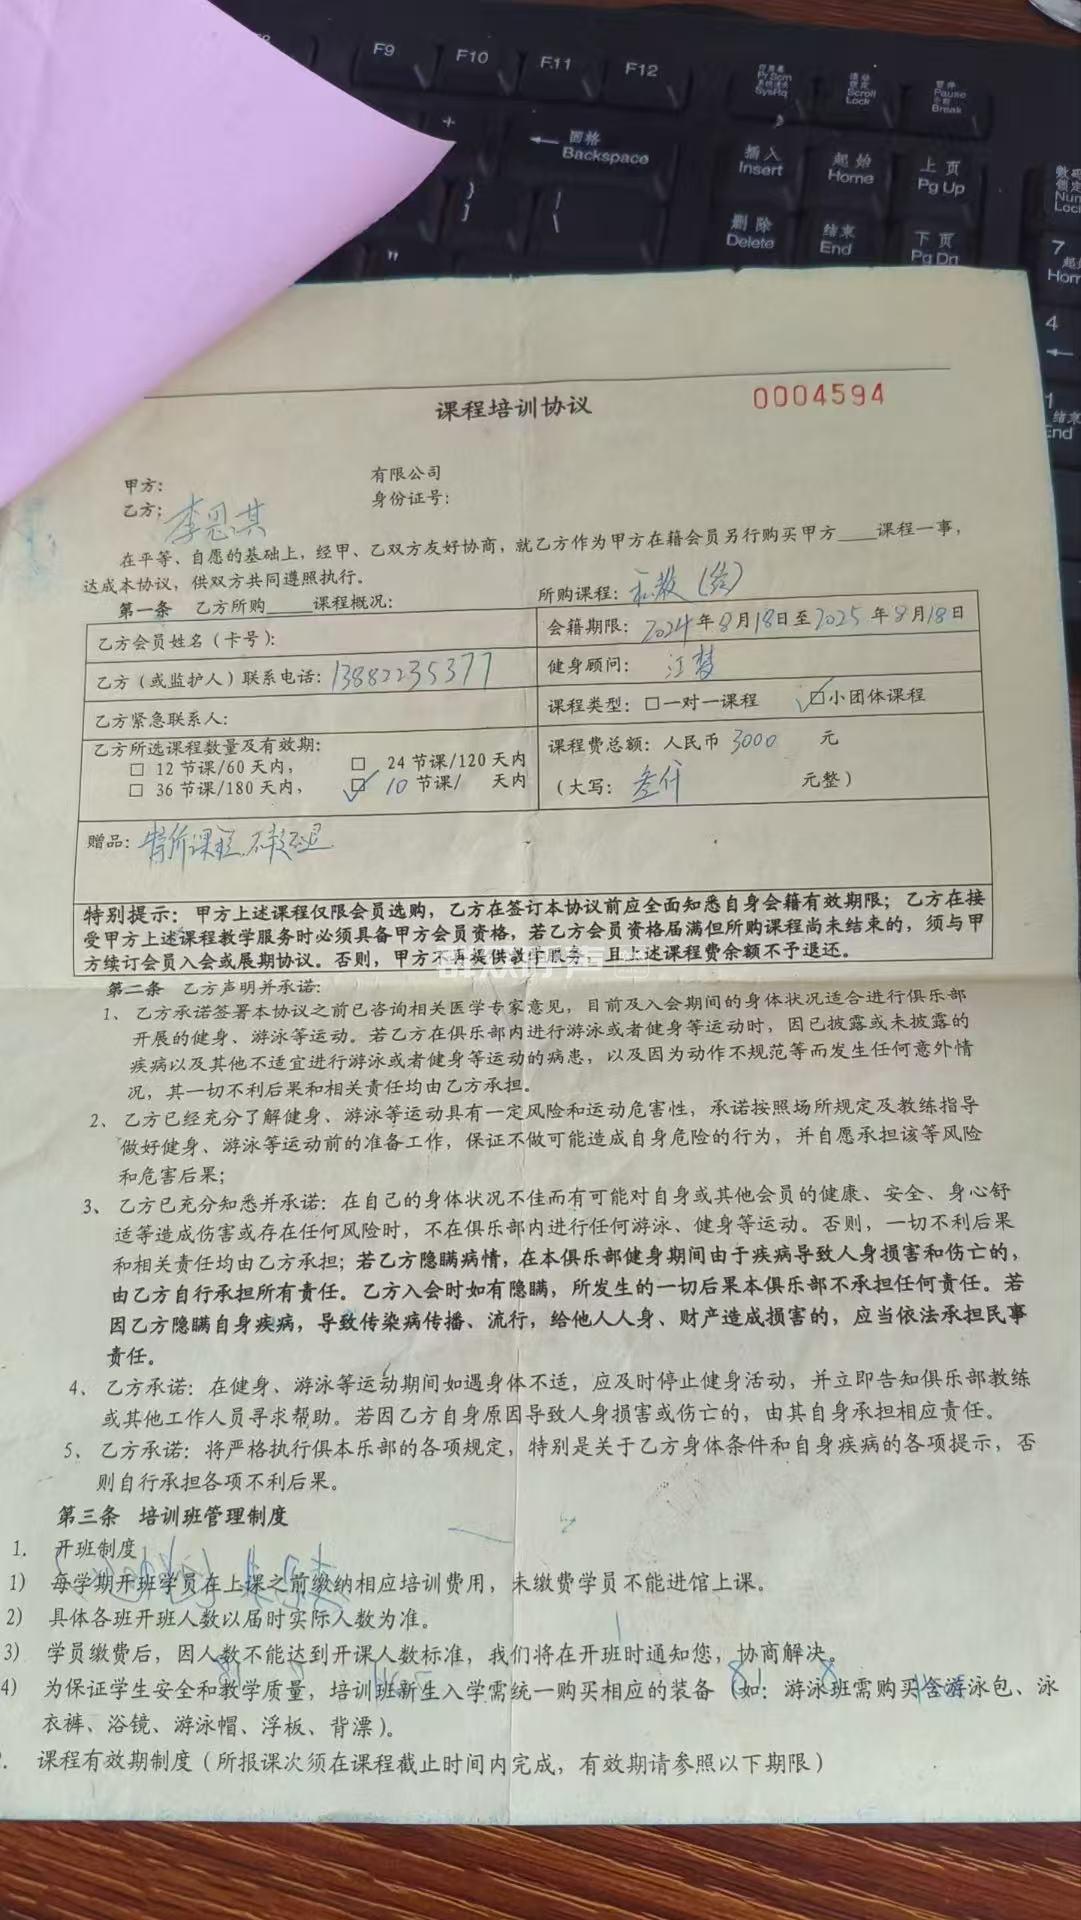 F9
F10
F11
F12
PrScrn
SysRq
Scroll
Lock
Pause
Break
Backspace
插入
Insert
起始
Home
上页
Pg Up
删除
Delete
结束
End
下页
Pg Dn
课程培训协议
0004594
甲方： 有限公司
乙方：李思淇 身份证号：
在平等、自愿的基础上，经甲、乙双方友好协商，就乙方作为甲方在籍会员另行购买甲方____课程一事，
达成本协议，供双方共同遵照执行。
第一条 乙方所购____课程概况： 所购课程：私教
乙方会员姓名（卡号）：
会籍期限：2024年8月18日至2025年8月18日
乙方（或监护人）联系电话：13882235377
健身顾问：汪梦
乙方紧急联系人：
课程类型：□一对一课程 ☑小团体课程
乙方所选课程数量及有效期：
□ 12节课/60天内， □ 24节课/120天内
□ 36节课/180天内， ☑ 10节课/ 天内
课程费总额：人民币 3000 元
（大写：叁仟 元整）
赠品：特价课程，不
特别提示：甲方上述课程仅限会员选购，乙方在签订本协议前应全面知悉自身会籍有效期限；乙方在接
受甲方上述课程教学服务时必须具备甲方会员资格，若乙方会员资格届满但所购课程尚未结束的，须与甲
方续订会员入会或展期协议。否则，甲方不再提供教学服务，且上述课程费余额不予退还。
群众呼声
第二条 乙方声明并承诺：
1、乙方承诺签署本协议之前已咨询相关医学专家意见，目前及入会期间的身体状况适合进行俱乐部
开展的健身、游泳等运动。若乙方在俱乐部内进行游泳或者健身等运动时，因已披露或未披露的
疾病以及其他不适宜进行游泳或者健身等运动的病患，以及因为动作不规范等而发生任何意外情
况，其一切不利后果和相关责任均由乙方承担。
2、乙方已经充分了解健身、游泳等运动具有一定风险和运动危害性，承诺按照场所规定及教练指导
做好健身、游泳等运动前的准备工作，保证不做可能造成自身危险的行为，并自愿承担该等风险
和危害后果；
3、乙方已充分知悉并承诺：在自己的身体状况不佳而有可能对自身或其他会员的健康、安全、身心舒
适等造成伤害或存在任何风险时，不在俱乐部内进行任何游泳、健身等运动。否则，一切不利后果
和相关责任均由乙方承担；若乙方隐瞒病情，在本俱乐部健身期间由于疾病导致人身损害和伤亡的，
由乙方自行承担所有责任。乙方入会时如有隐瞒，所发生的一切后果本俱乐部不承担任何责任。若
因乙方隐瞒自身疾病，导致传染病传播、流行，给他人人身、财产造成损害的，应当依法承担民事
责任。
4、乙方承诺：在健身、游泳等运动期间如遇身体不适，应及时停止健身活动，并立即告知俱乐部教练
或其他工作人员寻求帮助。若因乙方自身原因导致人身损害或伤亡的，由其自身承担相应责任。
5、乙方承诺：将严格执行俱本乐部的各项规定，特别是关于乙方身体条件和自身疾病的各项提示，否
则自行承担各项不利后果。
第三条 培训班管理制度
1. 开班制度
1) 每学期开班学员在上课之前缴纳相应培训费用，未缴费学员不能进馆上课。
2) 具体各班开班人数以届时实际人数为准。
3) 学员缴费后，因人数不能达到开课人数标准，我们将在开班时通知您，协商解决。
4) 为保证学生安全和教学质量，培训班新生入学需统一购买相应的装备（如：游泳班需购买含游泳包、泳
衣裤、浴镜、游泳帽、浮板、背漂）。
课程有效期制度（所报课次须在课程截止时间内完成，有效期请参照以下期限）